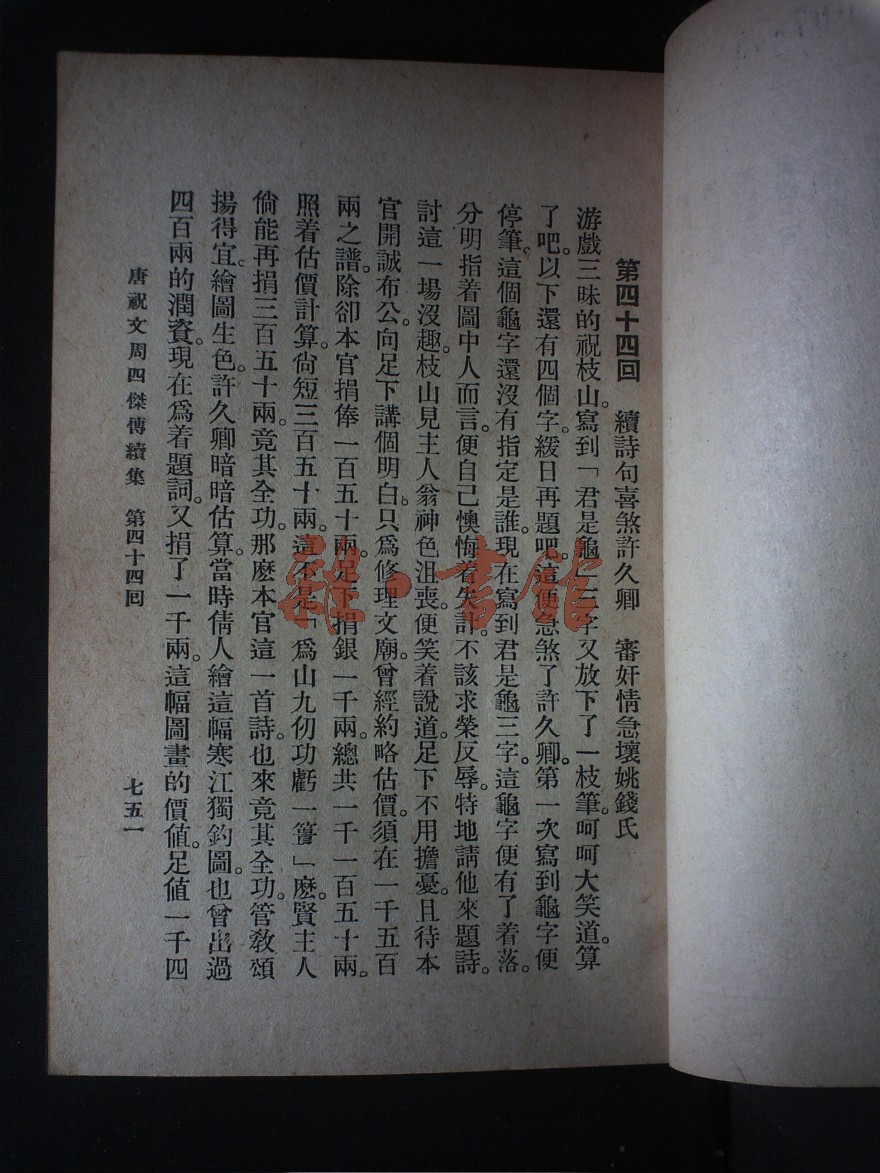 第四十四回　續詩句喜煞許久卿　審奸情急壞姚錢氏
游戲三昧的祝枝山。寫到「君是龜」三字又放下了一枝筆。呵呵大笑道。算
了吧。以下還有四個字。緩日再題吧。這便急煞了許久卿。第一次寫到龜字便
停筆。這個龜字還沒有指定是誰。現在寫到君是龜三字。這龜字便有了着落。
分明指着圖中人而言。便自己懊悔着失計。不該求榮反辱。特地請他來題詩。
討這一場沒趣。枝山見主人翁神色沮喪。便笑着說道。足下不用擔憂。且待本
官開誠布公。向足下講個明白。只爲修理文廟。曾經約略估價。須在一千五百
兩之譜。除卻本官捐俸一百五十兩。足下捐銀一千兩。總共一千一百五十兩。
照着估價計算。尙短三百五十兩。這不是「爲山九仞功虧一簣」麽。賢主人
倘能再捐三百五十兩。竟其全功。那麽本官這一首詩。也來竟其全功。管敎頌
揚得宜。繪圖生色。許久卿暗暗估算。當時倩人繪這幅寒江獨釣圖。也曾出過
四百兩的潤資。現在爲着題詞。又捐了一千兩。這幅圖畫的價値。足值一千四
唐祝文周四傑傳續集　第四十四回　七五一
雜·書館